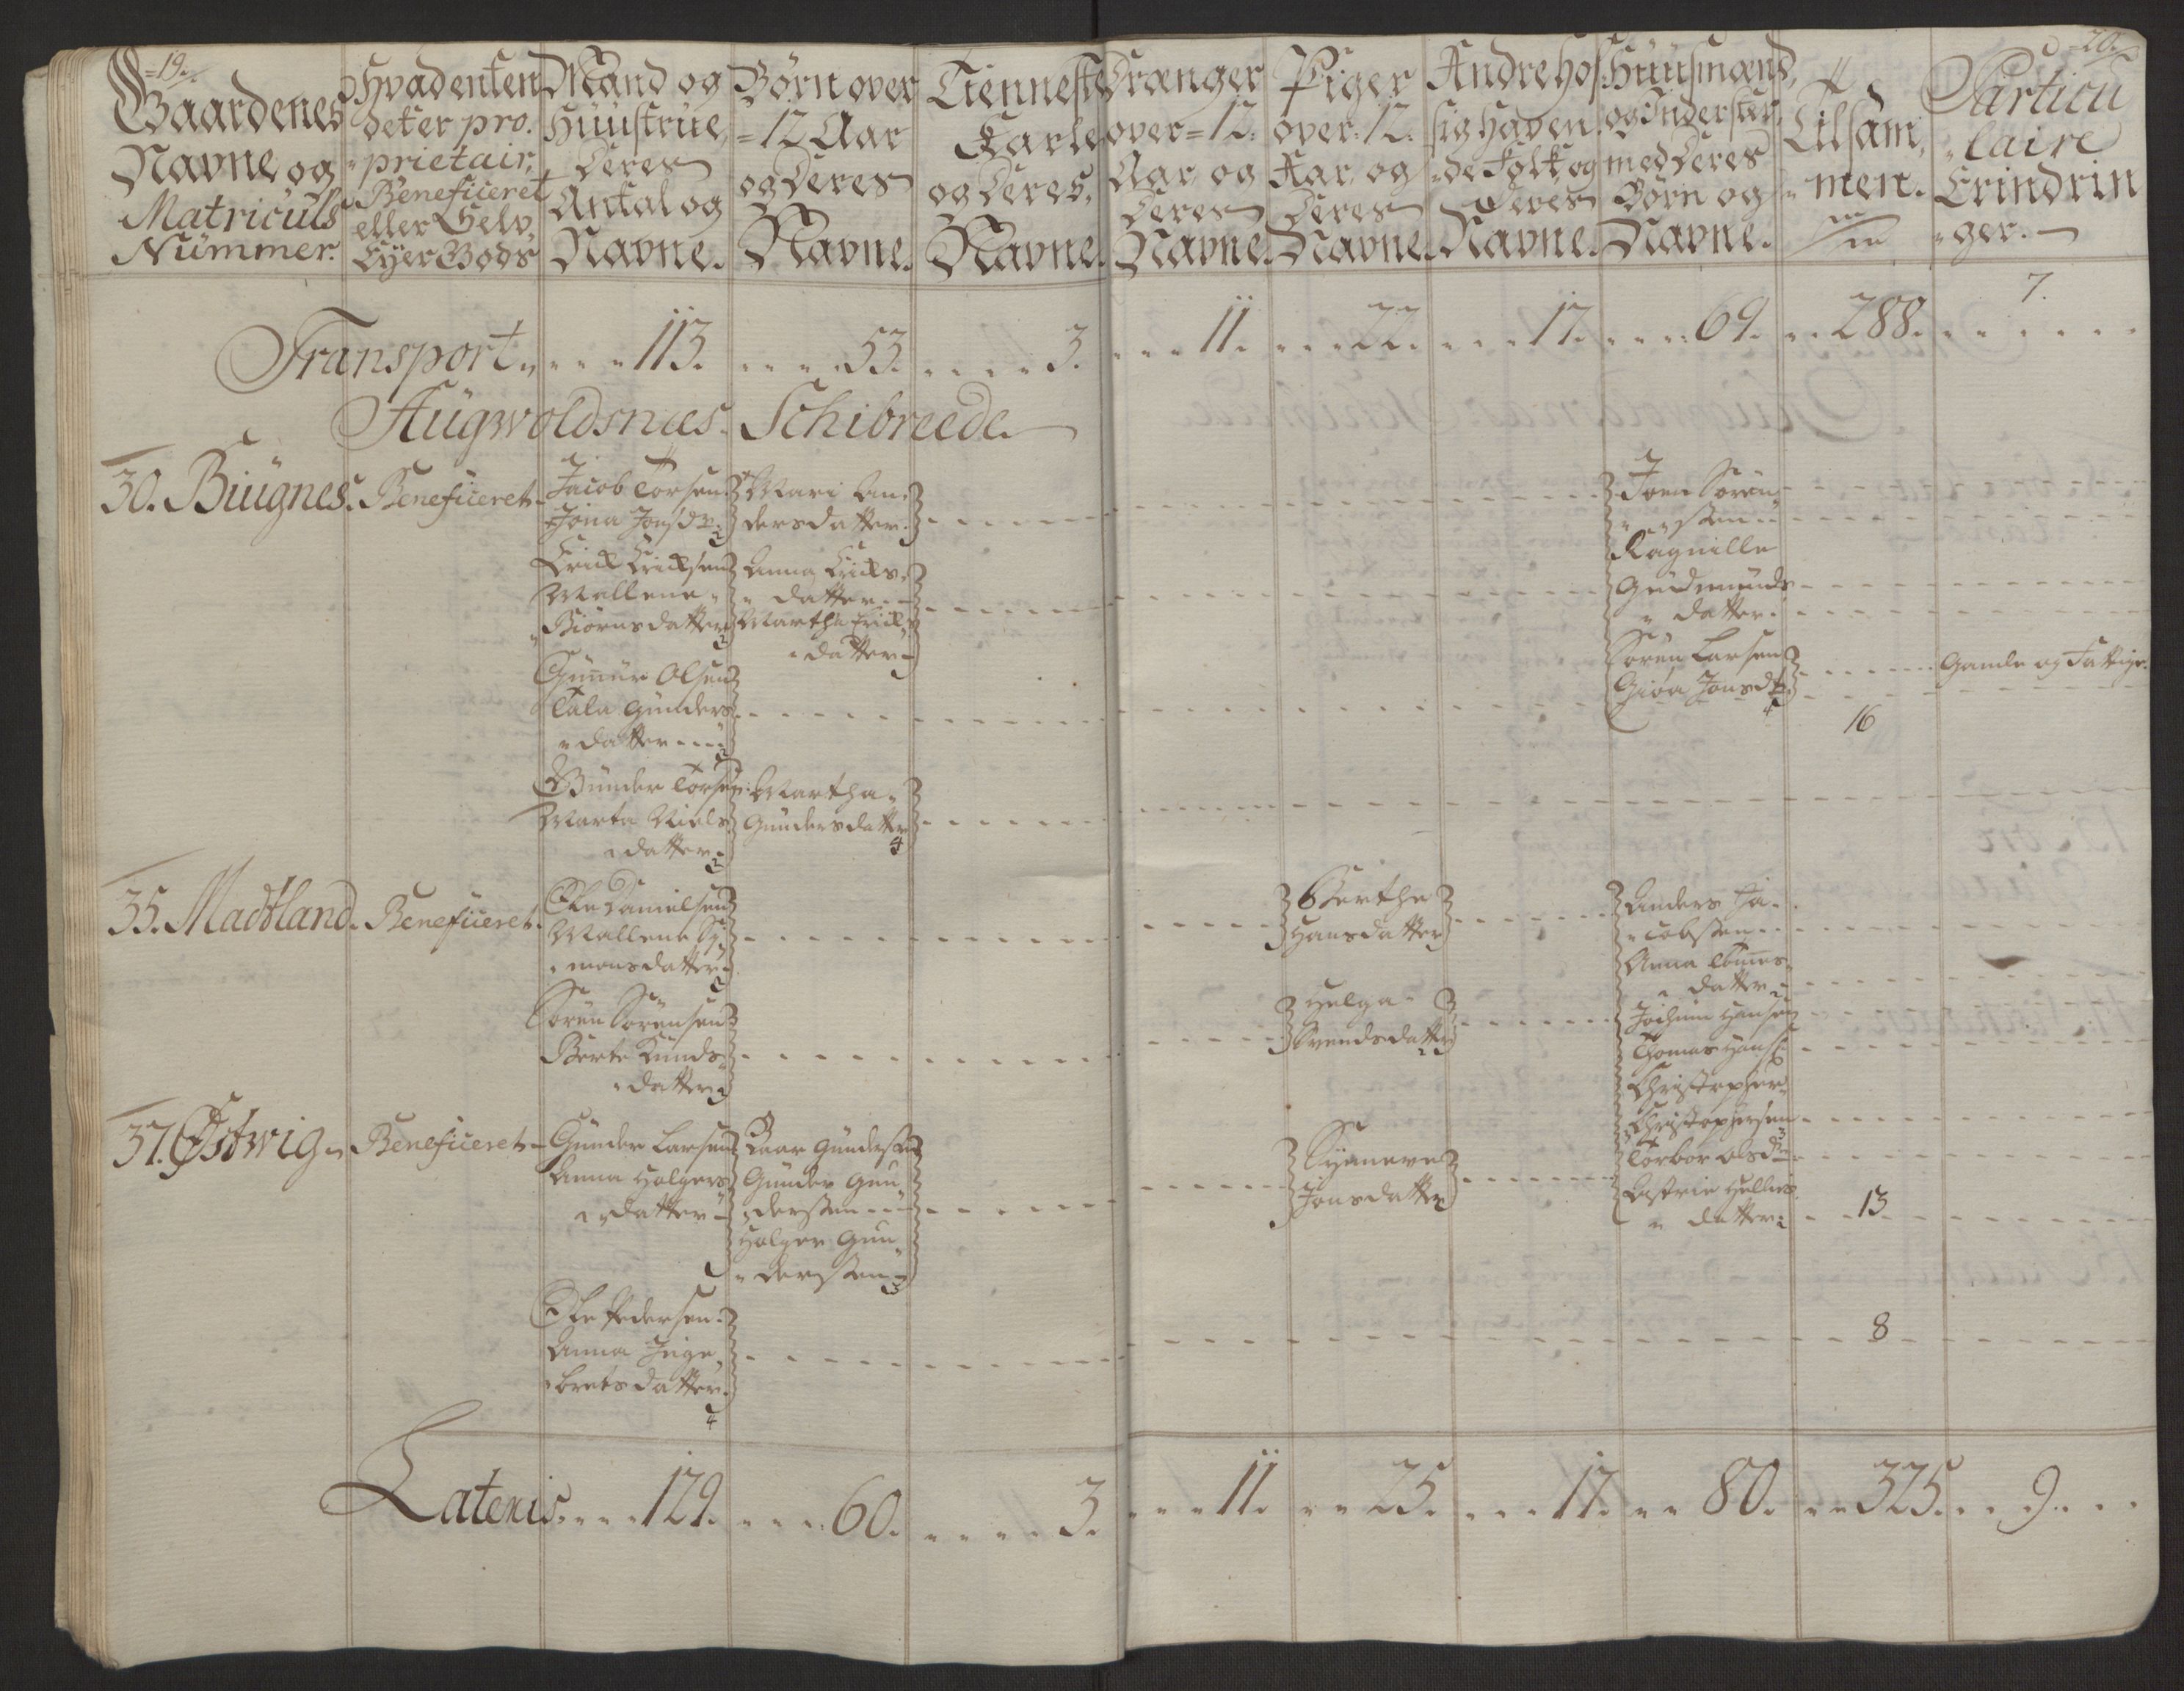 =19=
Gaardenes
Navne og
Matriculs
Nümmer.
Hvad enten
det er pro.
prietair,
Beneficeret
eller Selv,
Eÿer Gods
Mand og
Hüüstrüe,
Deres
Antal og
Navne.
Børn over
=12 Aar
og Deres
Navne.
Tienneste
Karle
og Deres,
Navne.
Drænger
over=12:
Aar, og
Deres
Navne.
Piger
over: 12:
Aar, og
Deres
Navne.
Andre hos
sig haven,
de Folk, og
Deres
Navne.
Hüüsmænd,
og Inderster,
med Deres
Børn og
Navne.
Tilsam,
men.
=20=
Particu
laire
Erindrin
ger.
Transport 113. 53. 3. 11. 22. 17. 69. 288. 7.
Aügwoldsnæs Schibreede
30. Biügnes. Beneficeret
Jacob Torsen
Jona Jonsdr: 2
Erick Ericksen
Mallene
Biørnsdatter 2
Günür Olsen
Tala Günders
datter 2
Günder Torsen
Marta Niels
datter 2
Mari An,
dersdatter.
Anna Ericks,
datter
Martha Ericks
datter
Martha
Gündersdatter
4
Joen Sören
ssen
Ragnille
Güdmünds
datter.
Sören Larsen
Gioa Jonsdtr
4
16
Gamle og Fattige.
35. Madtland. Beneficeret.
Ole Danielsen
Mallene Si,
monsdatter
Sören Sörensen
Berte Knuds
datter
Berthe
Hansdatter
Helga
Svendsdatter
2
Anders Ja
cobssen
Anna Tommes
datter
Jochum Hansen
Thomas Hans:
Christopher
Christophersen
Torbor Olsdr
Astrie Helles
datter:
13
37. Østwig Beneficeret
Günder Larsen
Anna Holgers
datter
Ole Pedersen.
Anna Inge,
bretsdatter
4
Laar Gündersen
Günder Gün
derssen
Holger Gün
derssen 3
Syneve
Jonsdatter
8
Lateris 129. 60. 3. 11. 25. 17. 80. 325. 9.